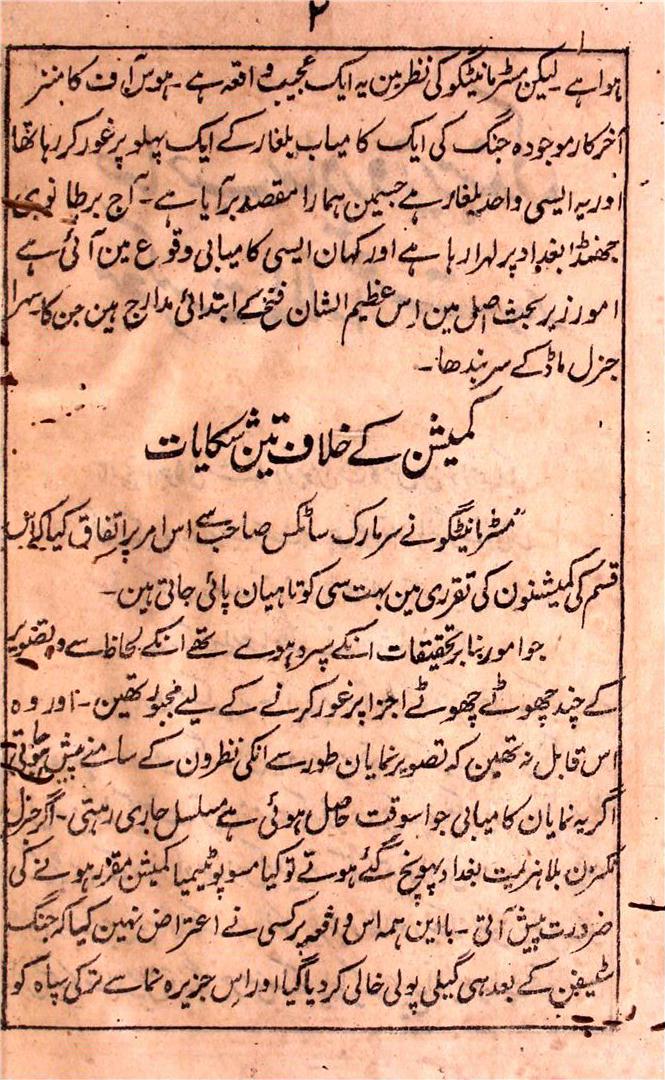 ۲
ہوا ہے۔ لیکن مسٹر مانٹیگو کی نظر مین یہ ایک عجیب واقعہ ہے۔ ہوس آف کامنز
آخرکار موجودہ جنگ کی ایک کامیاب یلغار کے ایک پہلو پر غور کر رہا تھا
اور یہ ایسی واحد یلغار ہے جسیمن ہمارا مقصد بر آیا ہے۔ آج برطانوی
جھنڈا بغداد پر لہرا رہا ہے اور کہان ایسی کامیابی وقوع مین آئی ہے
امور زیر بحث اصل مین اس عظیم الشان فتح کے ابتدائی مدارج ہین جن کا سہرا
جنرل ماڈ کے سر بندھا۔
کمیشن کے خلاف تین شکایات
مسٹر مانٹیگو نے سر مارک سائکس صاحب سے اس امر پر اتفاق کیا کہ اس
قسم کی کمیشنون کی تقرری مین بہت سی کوتاہیان پائی جاتی ہین۔
جو امور بنابر تحقیقات انکے سپرد ہوے تھے انکے لحاظ سے وہ تصویر
کے چند چھوٹے چھوٹے اجزا پر غور کرنے کے لیے مجبور تھین۔ اور وہ
اس قابل نہ تھین کہ تصویر نمایان طور سے انکی نظرون کے سامنے پیش ہوتی
اگر یہ نمایان کامیابی جو اسوقت حاصل ہوئی ہے مسلسل جاری رہتی۔ اگر جنرل
بلا ہزیمت بغداد پہونچ گئے ہوتے تو کیا مسوپوٹیمیا کمیشن مقرر ہونے کی
ضرورت پیش آتی۔ با این ہمہ اس واقعہ پر کسی نے اعتراض نہین کیا کہ جنگ
کے بعد ہی گیلی پولی خالی کر دیا گیا اور اس جزیرہ نما سے ترکی سپاہ کو